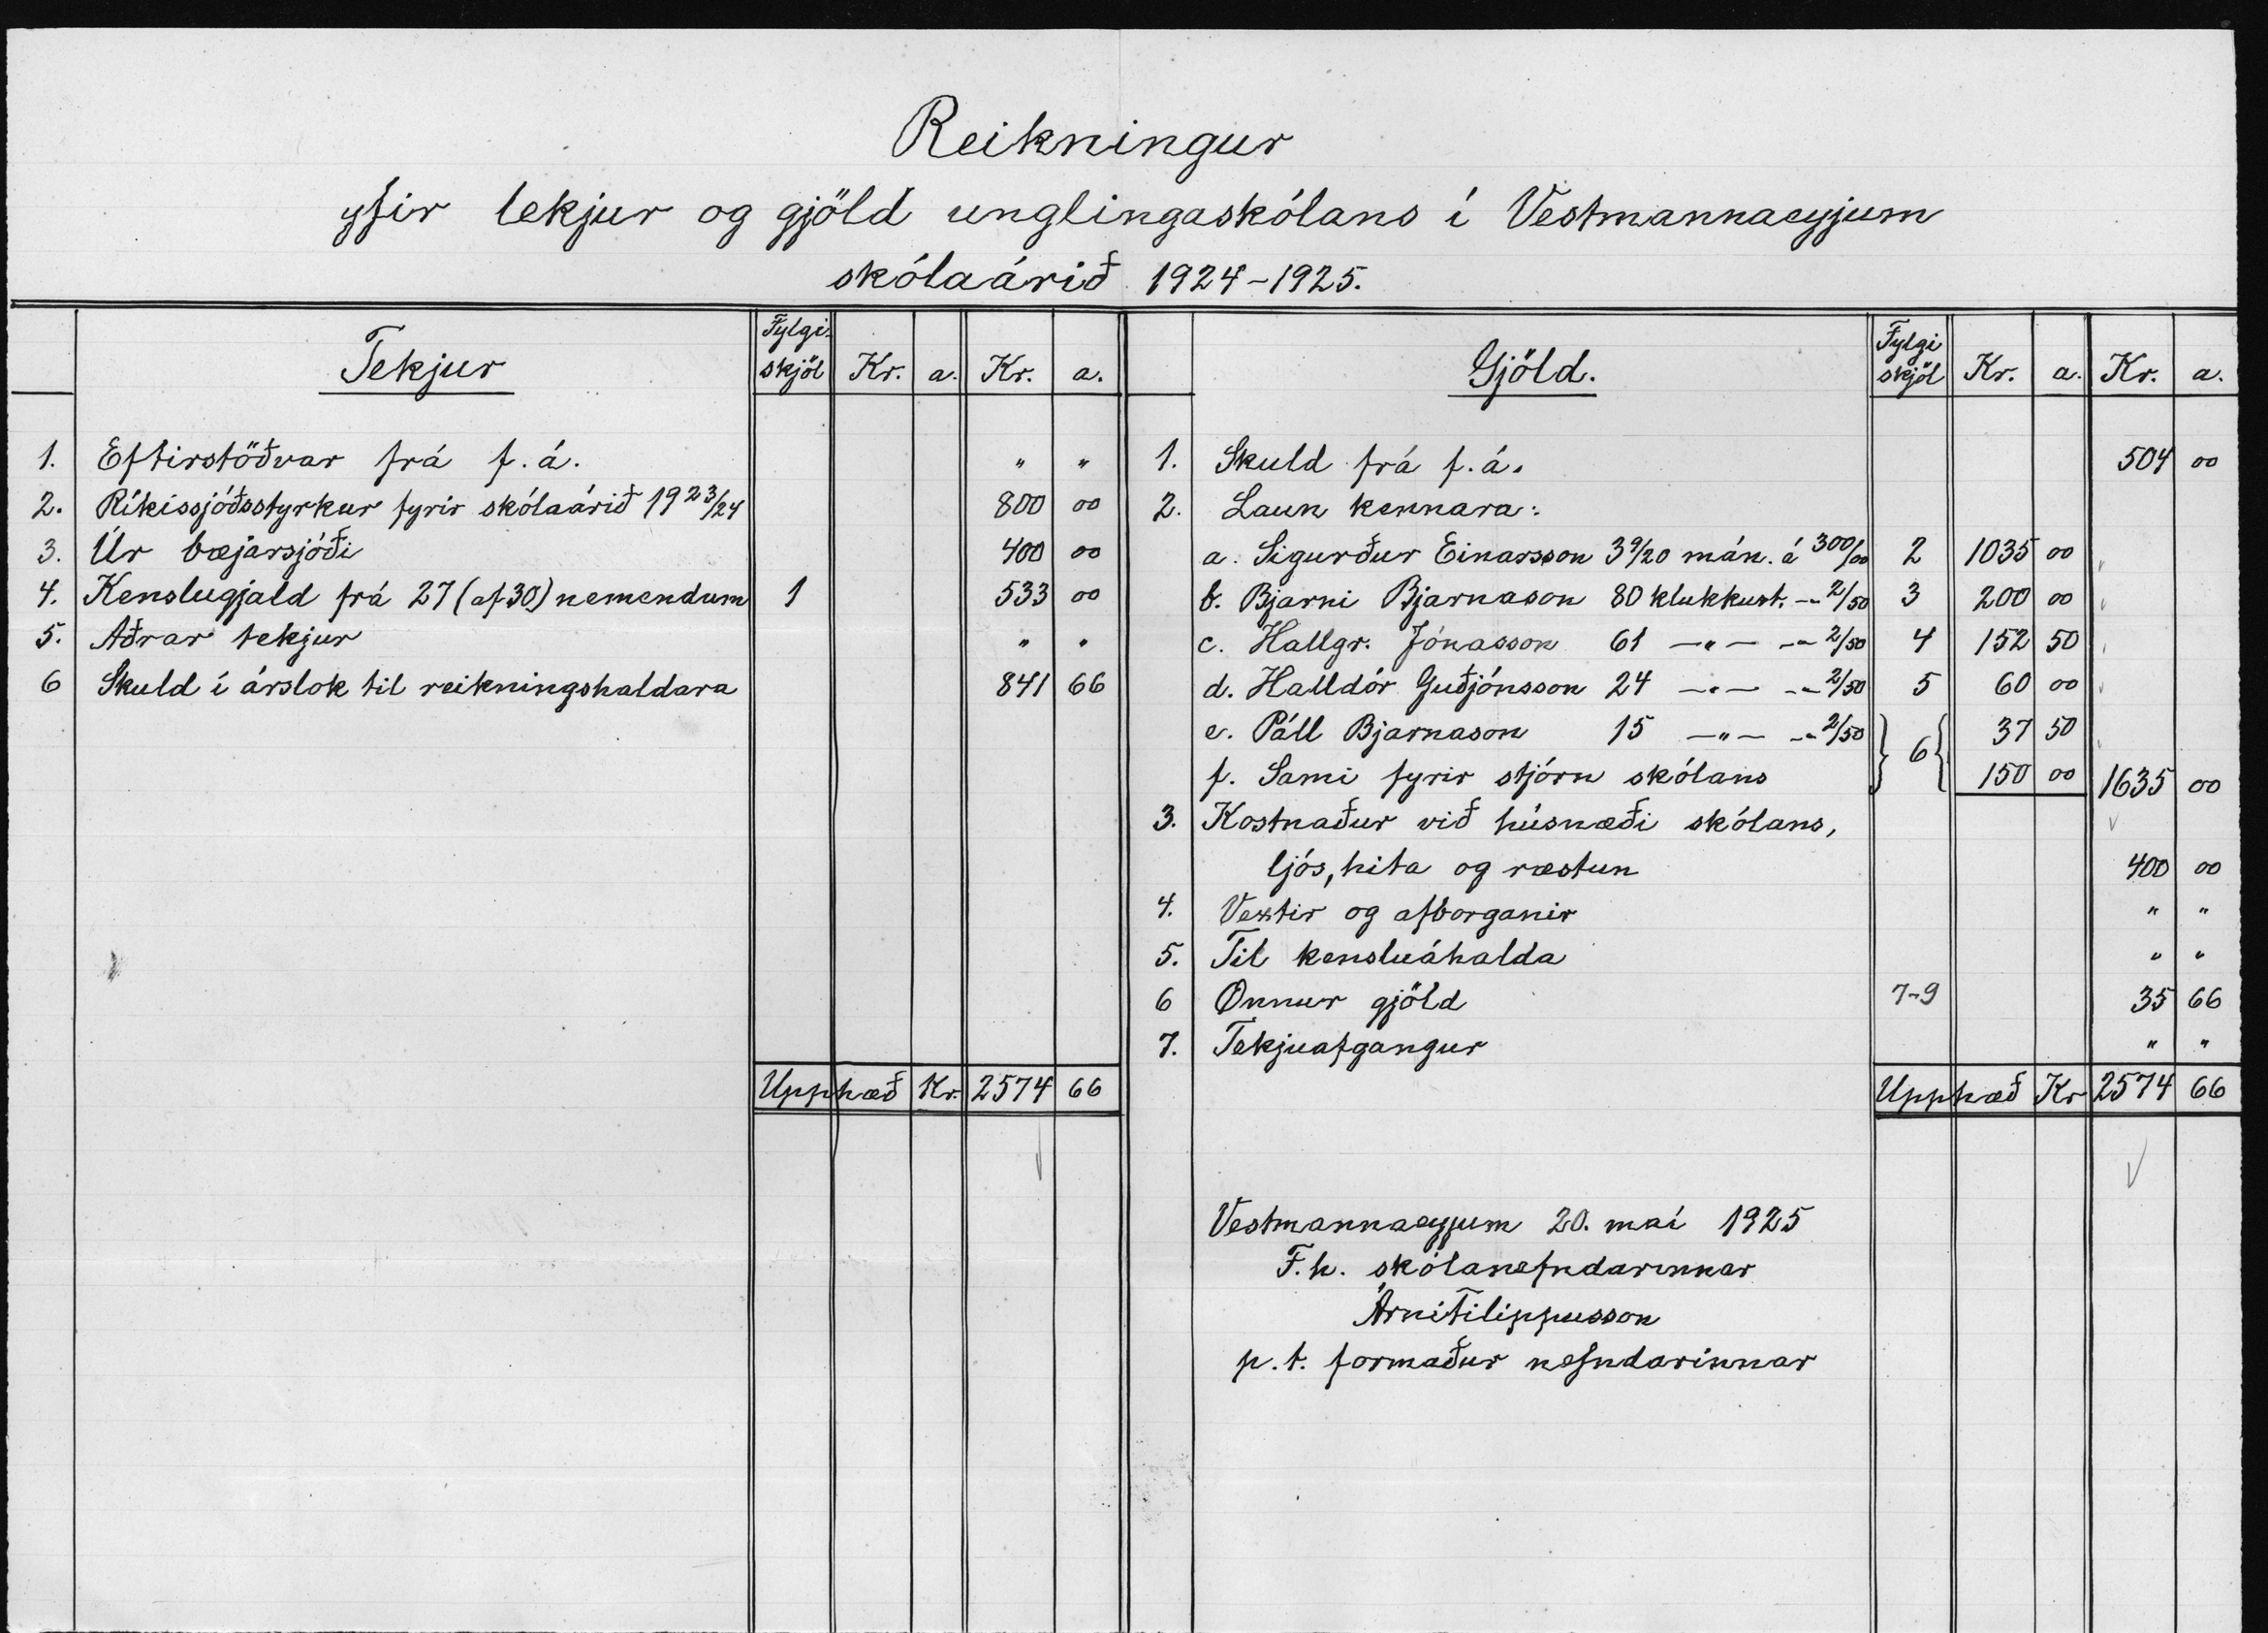 Reikningur
yfir tekjur og gjöld unglingaskólans í Vestmannaeyjum
skólaárið 1924-1925.
Tekjur Fylgi-skjöl Kr. a. Kr. a.
1. Eftirstöðvar frá f.á. " "
2. Ríkissjóðsstyrkur fyrir skólaárið 1923/24 800 00
3. Úr bæjarsjóði 400 00
4. Kenslugjald frá 27 (af 30) nemendum 1 533 00
5. Aðrar tekjur " "
6 Skuld í árslok til reikningshaldara 841 66
Upphæð Kr. 2574 66
Gjöld. Fylgi skjöl Kr. a. Kr. a.
1. Skuld frá f.á. 504 00
2. Laun kennara:
a. Sigurður Einarsson 3 9/20 mán. á 300/00 2 1035 00
b. Bjarni Bjarnason 80 klukkust. -"- 2/50 3 200 00
c. Hallgr. Jónasson 61 -"- -"- 2/50 4 152 50
d. Halldór Guðjónsson 24 -"- -"- 2/50 5 60 00
e. Páll Bjarnason 15 -"- -"- 2/50 } 6 { 37 50
f. Sami fyrir stjórn skólans 150 00 1635 00
3. Kostnaður við húsnæði skólans,
ljós, hita og ræstun 400 00
4. Vextir og afborganir " "
5. Til kensluáhalda " "
6 Onnur gjöld 7-9 35 66
7. Tekjuafgangur " "
Upphæð Kr 2574 66
Vestmannaeyjum 20. maí 1925
F.h. skólanefndarinnar
Árni Filippusson
p.t. formaður nefndarinnar